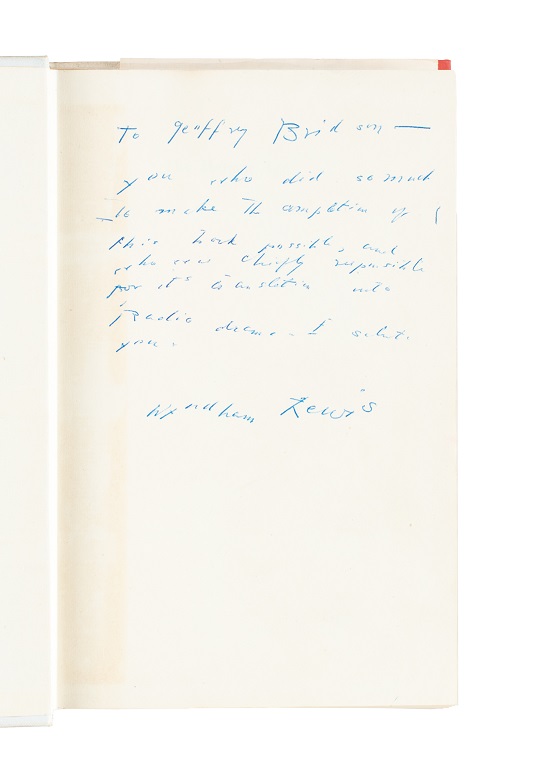 To Geoffrey Bridson —
you who did so much
to make the completion of
this book possible, and
who was chiefly responsible
for its translation into
Radio drama. I salute
you.
Wyndham Lewis